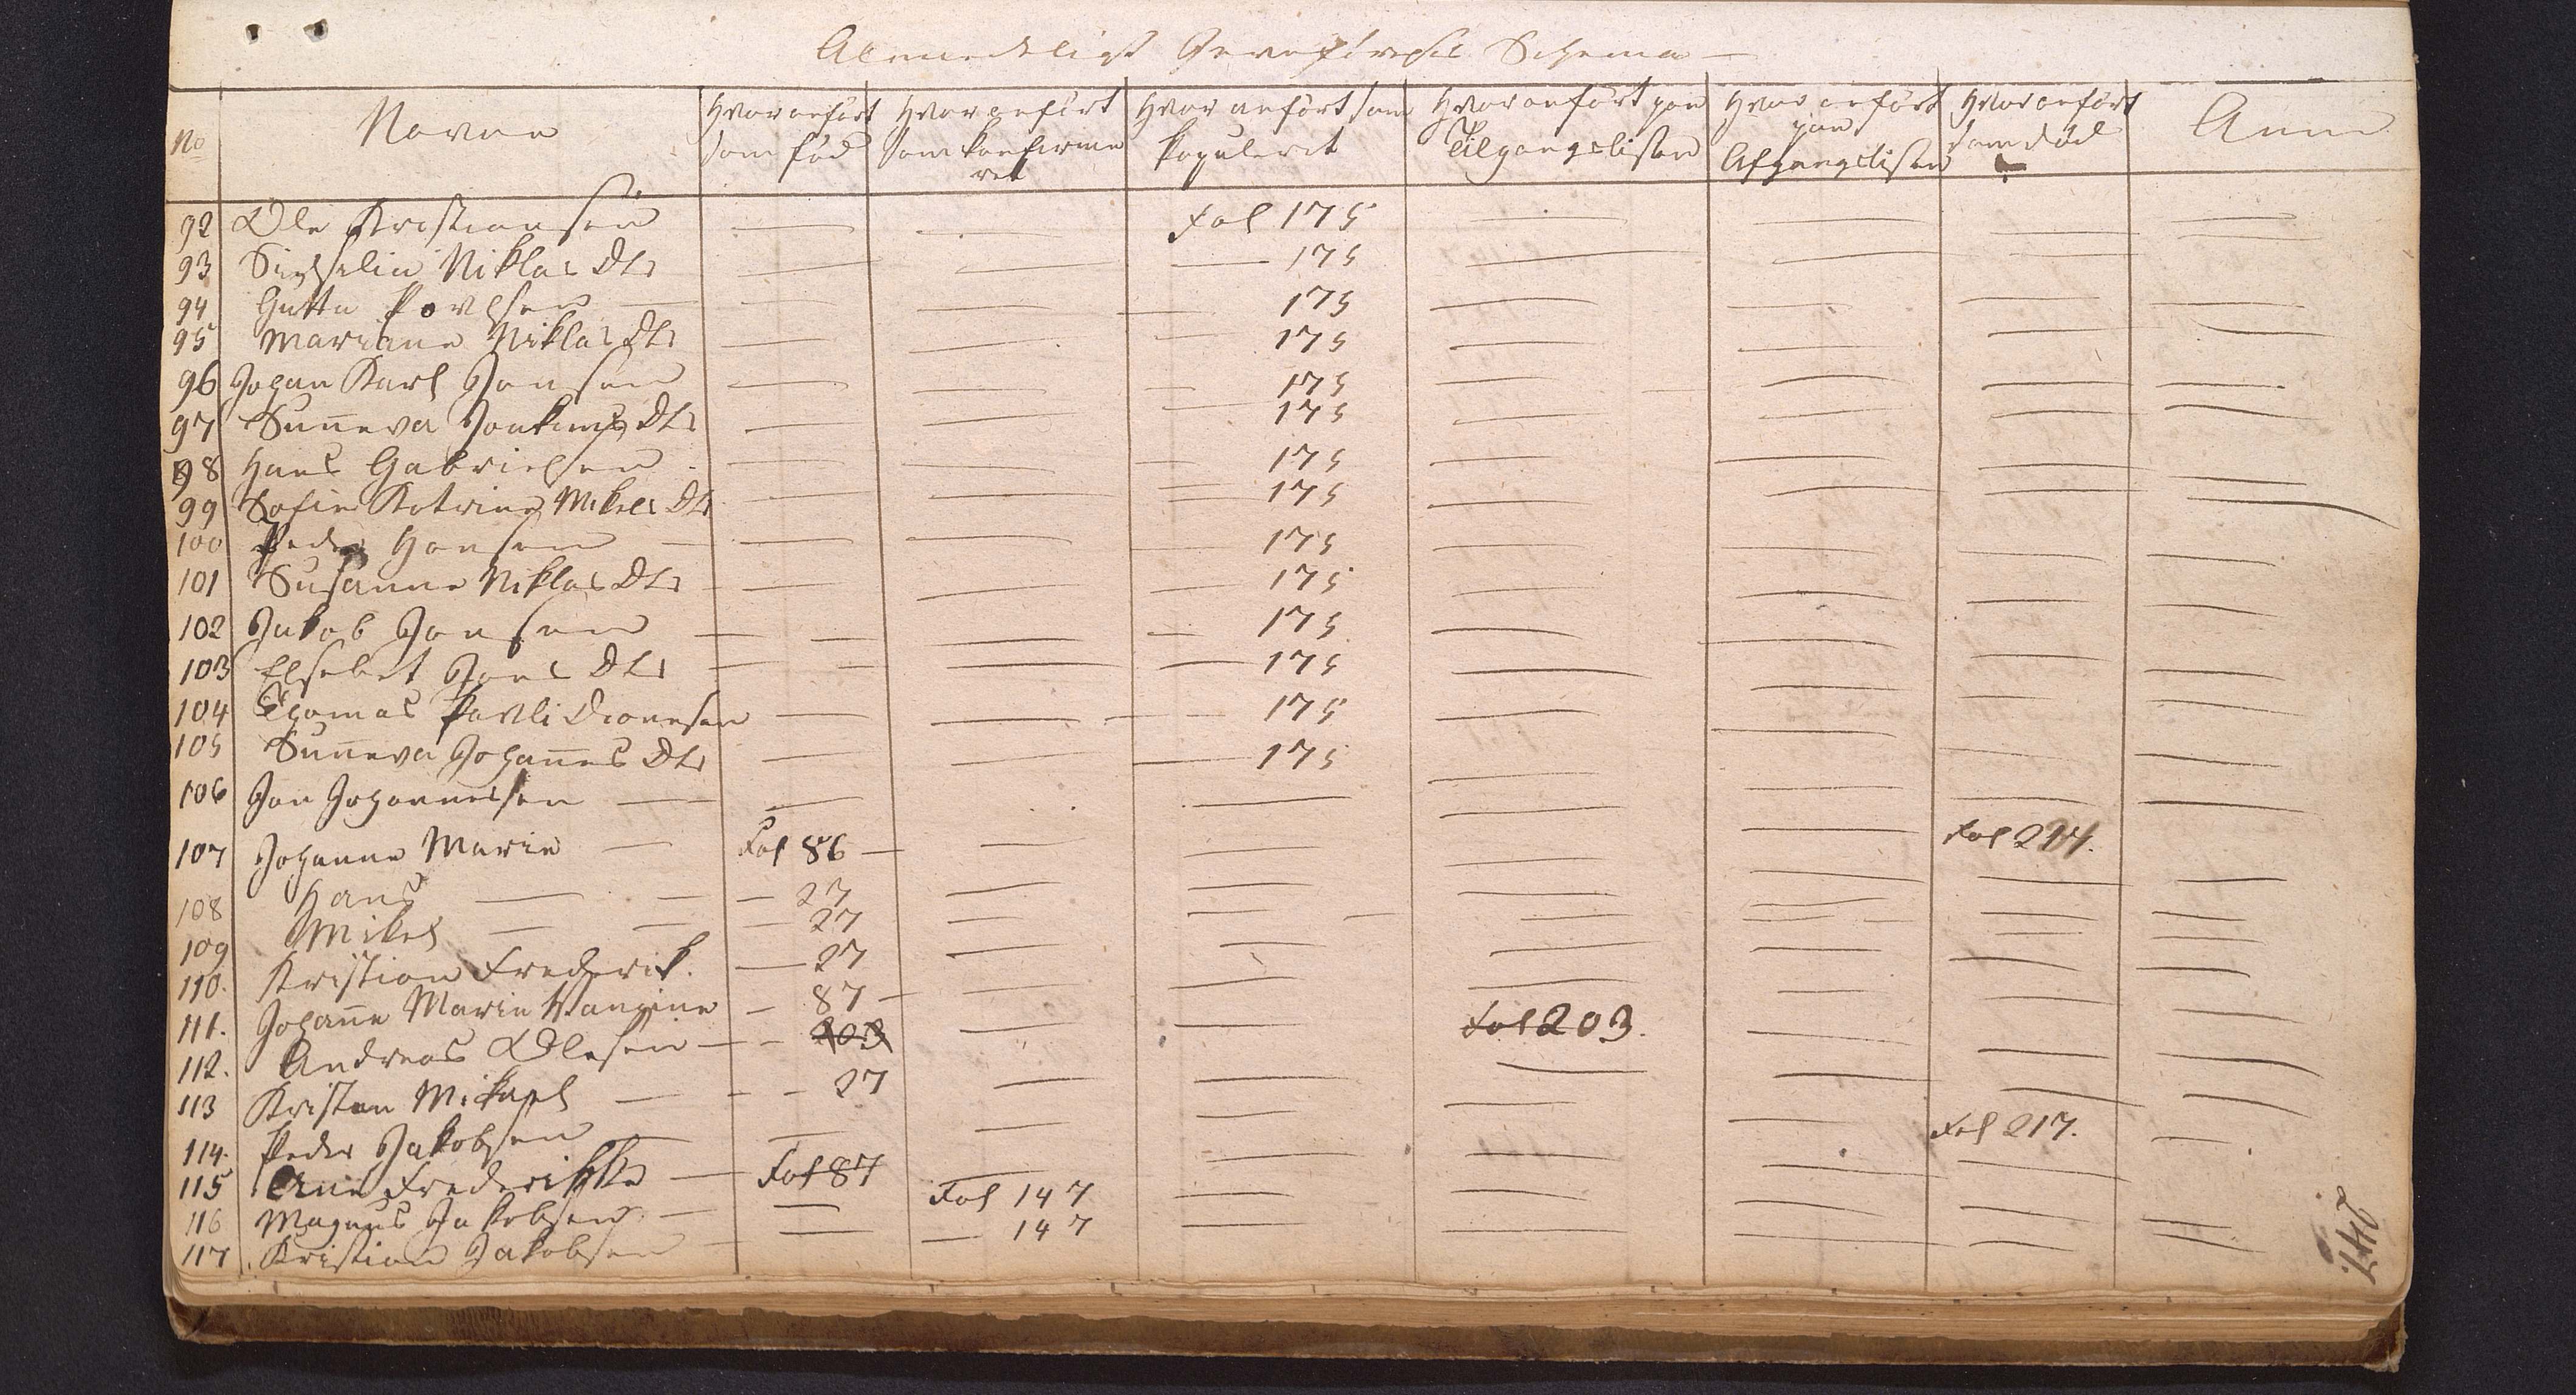 Almindeligt Jevnførelses Schema —
No Navne Hvor anført som fød Hvor anført som konfirmeret Hvor anført som kopuleret Hvor anført paa Tilgangslisten Hvor anført paa Afgangslisten Hvor anført som død Anm
92 Ole Kristiansen — — Fol 175 — — — —
93 Niklas Dtr — — — 175 — — — —
94 Gutte Povlsen — — — — 175 — — — —
95 Mariane Niklas Dtr — — — 175 — — — —
96 Johan Karl Jonsen — — — 175 — — — —
97 Suñeva Joakims Dtr — — — 175 — — — —
98 Hans Gabrielsen — — — 175 — — — —
99 Sofie Katrine Mikels Dtr — — — 175 — — — —
100 Peder Hansen — — — — 175 — — — —
101 Susanne Niklas Dtr — — — 175 — — — —
102 Jakob Jonsen — — — — 175 — — — —
103 Elsebet Jons Dtr — — — — 175 — — — —
104 Thomas Povli Dionesen — — — 175 — — — —
105 Suñeva Johañes Dtr — — — 175 — — — —
106 Jon Johannesen — — — — — — — —
107 Johanne Marie — Fol 86 — — — — — Fol 214.
108 Hans — — — 27 — — — — — —
109 Mikel — — — 27 — — — — — —
110. Kristian Frederik. — 27 — — — — — —
111. Johañe Marie Vangine — 87 — — — — — — —
112. Andreas Olesen — — 203 — — Fol 203. — — —
113 Kristen Mikael — — — 27 — — — — — —
114. Peder Jakobsen — — — — — — Fol 217. —
115 Ane Frederikke — Fol 87 — — — — — —
116 Magnus Jakobsen — — Fol 147 — — — — —
117 Kristian Jakobsen — — — 147 — — — — —
247.